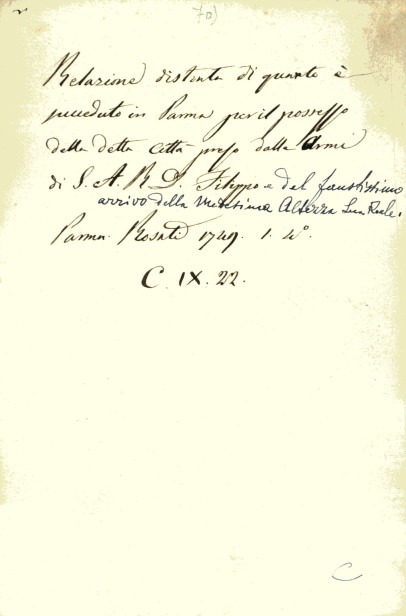 70)
Relazione distinta di quanto è
succeduto in Parma per il possesso
della detta Città preso dalle Armi
di S. A. R. D. Filippo e del faustissimo
arrivo della Medesima Altezza Sua Reale.
Parma. Rosati 1749. 1. 4°.
C. IX. 22.
C